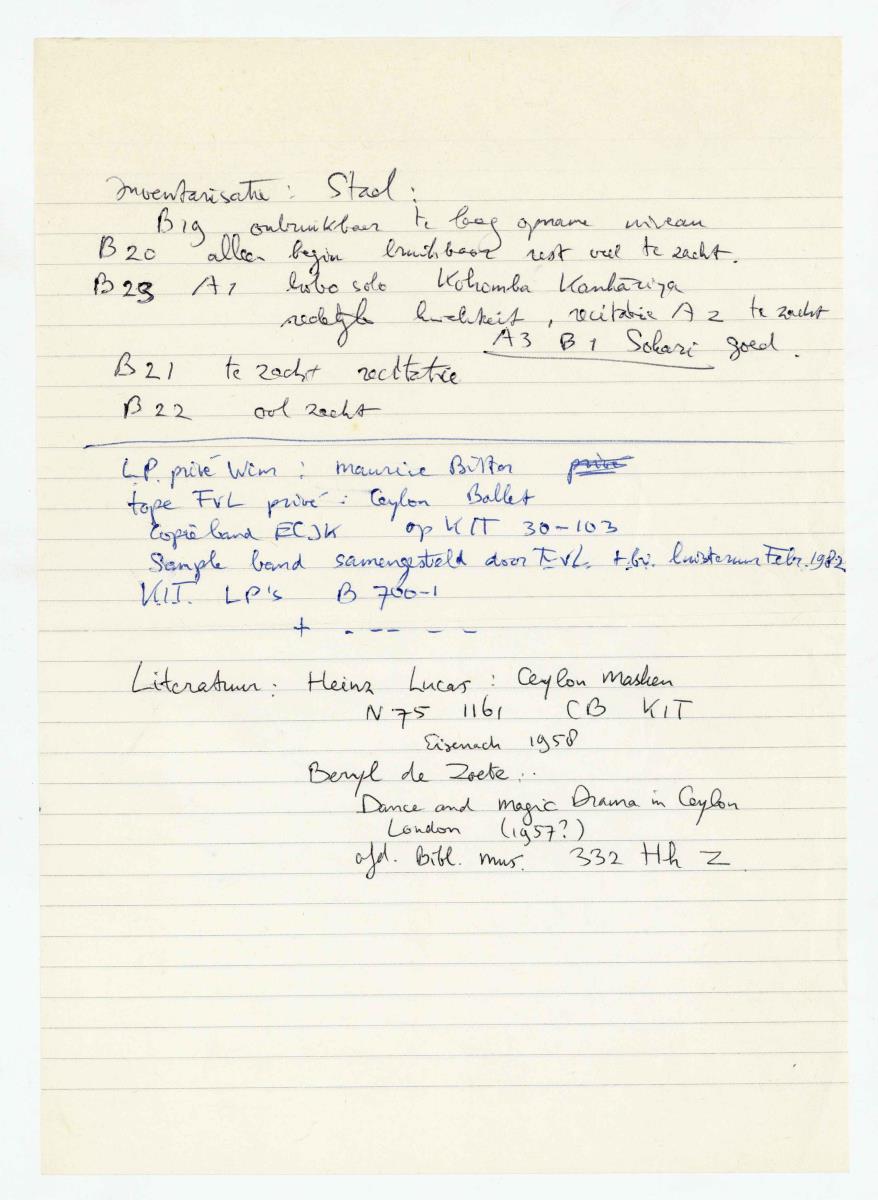 Inventarisatie : Stad :
B19 onbruikbaar te laag opname niveau
B 20 alleen begin bruikbaar rest veel te zacht.
B 23 A1 hobo solo Kohomba Kankāriya
redelijke kwaliteit, recitatie A 2 te zacht
A3 B1 Sokari goed.
B 21 te zacht recitatie
B 22 ook zacht
L.P. privé Wim : Maurice Bitter
tape FvL privé : Ceylon Ballet
Copie band ECJK op KIT 30-103
Sample band samengesteld door FvL. t.b.v. Febr. 1982
K.I.T. LP's B 700-1
+ - -- - -
Literatuur : Heinz Lucas : Ceylon Masken
N 75 1161 CB KIT
Eisenach 1958
Beryl de Zoete :
Dance and magic Drama in Ceylon
London (1957?)
afd. Bibl. mus. 332 Hh Z